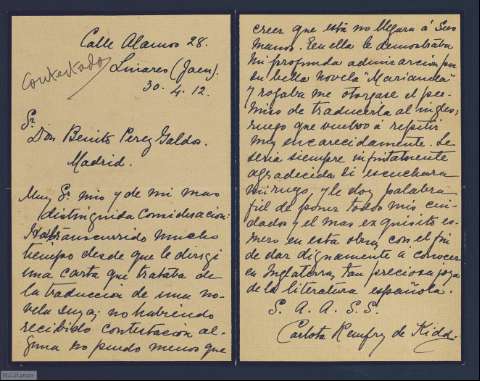 Calle Alamos 28.
Contestado
Linares (Jaen).
30. 4. 12.
Sr.
Don Benito Perez Galdos.
Madrid.
Muy Sr. mio y de mi mas
distinguida consideración:
Ha transcurrido mucho
tiempo desde que le dirigi
una carta que trataba de
la traduccion de una no-
vela suya; no habiendo
recibido contestación al-
guna no puedo menos que
creer que esta no llegara á Sus
manos. En ella le demostraba
mi profunda admiracion por
su bella novela "Marianela"
y rogaba me otorgase el per-
miso de traducirla al ingles;
ruego que vuelvo á repetir
muy encarecidamente. Le
seria siempre infinitamente
agradecida si escuchara
mi ruego, y le doy palabra
fiel de poner todo mis cui-
dados y el mas exquisito es-
mero en esta obra, con el fin
de dar dignamente á conocer
en Inglaterra, tan preciosa joya
de la literatura española.
S. A. A. S. S.
Carlota Remfry de Kidd.